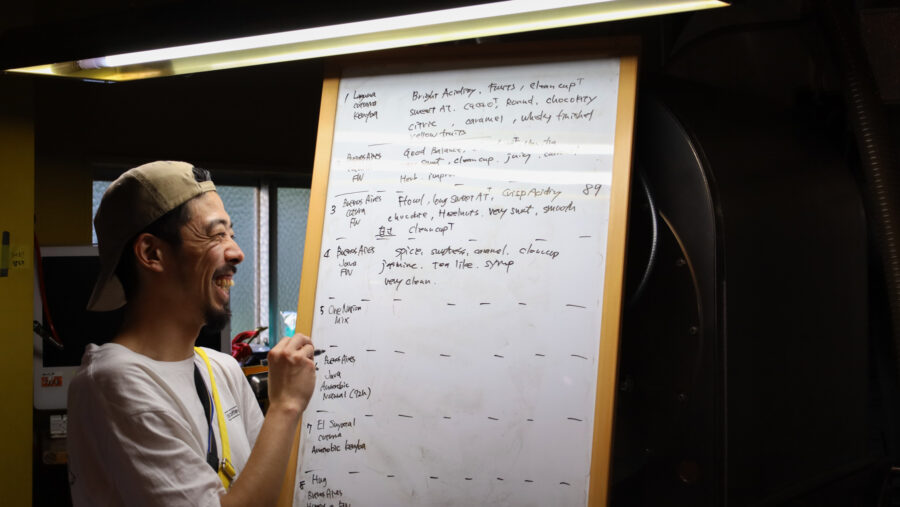 1 Laguna
caturra
Kenya
Bright Acidity, Fruits, clean cup↑
sweet AT. cacao↑, Round, chocolaty
citric, caramel, Whisky finished
yellow fruits
Buenos Aires
FW
Good Balance,
clean cup, juicy,
Herb
3 Buenos Aires
FW
Floral, long sweet AT↑, Crisp Acidity 89
chocolate, Hazelnuts. Very sweet, smooth
clean cup↑
4 Buenos Aires
Java
FW
spice, sweetness, caramel, clean cup
jasmine. Tea like. syrup
very clean.
5 One Nation
Mix
6 Buenos Aires
Java
Anaerobic
Natural (92h)
7 El
Anaerobic
8
Buenos Aires